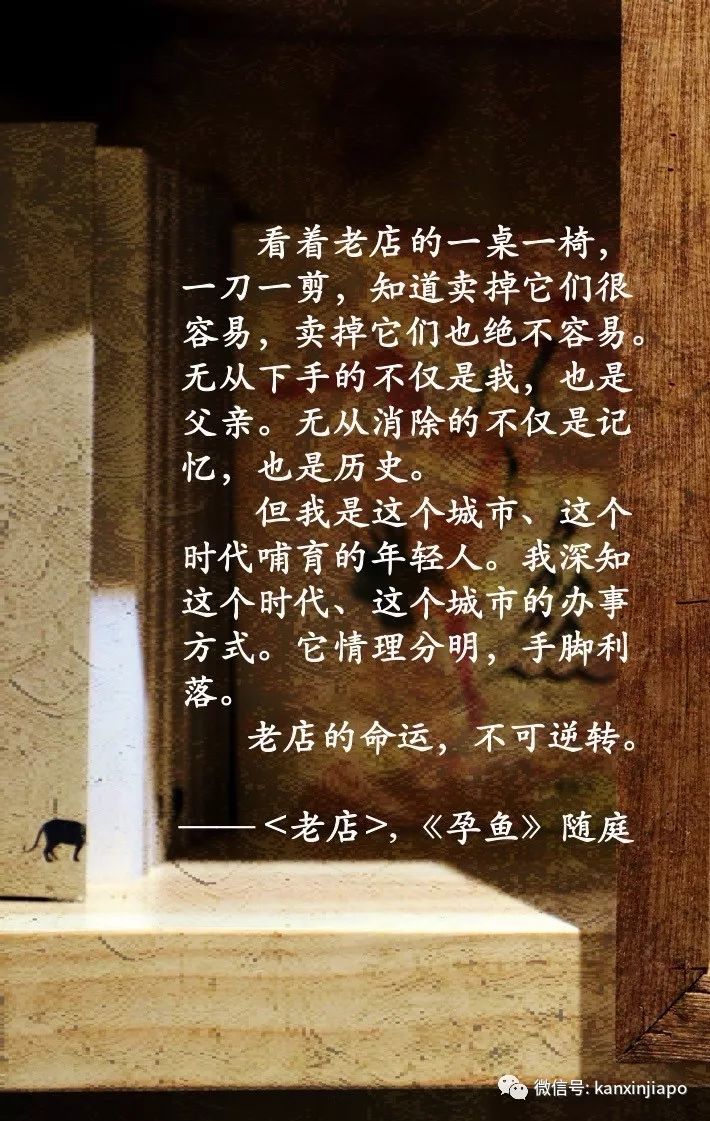 看着老店的一桌一椅，
一刀一剪，知道卖掉它们很
容易，卖掉它们也绝不容易。
无从下手的不仅是我，也是
父亲。无从消除的不仅是记
忆，也是历史。
但我是这个城市、这个
时代哺育的年轻人。我深知
这个时代、这个城市的办事
方式。它情理分明，手脚利
落。
老店的命运，不可逆转。
—— <老店>，《孕鱼》随庭
微信号: kanxinjiapo